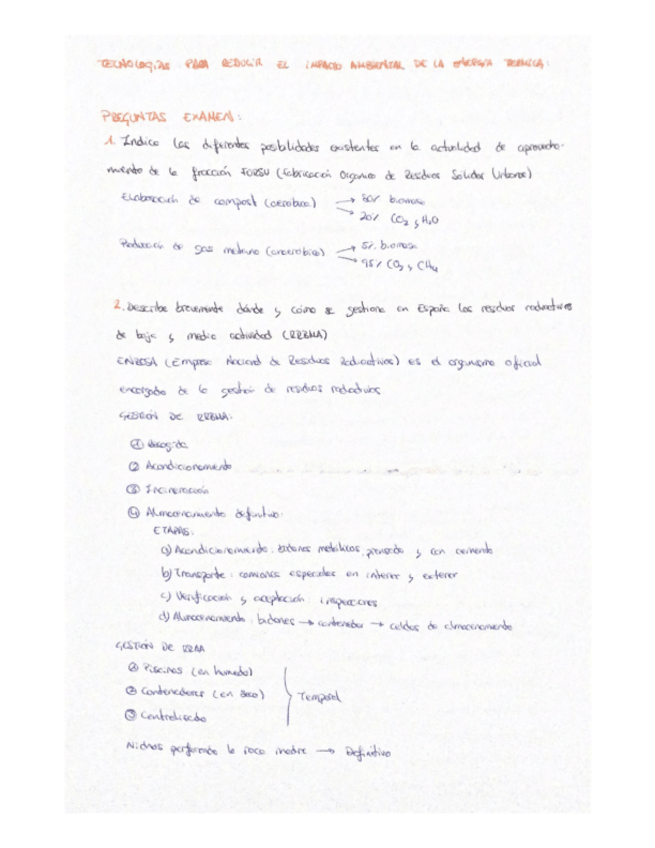 TECNOLOGÍAS PARA REDUCIR EL IMPACTO AMBIENTAL DE LA ENERGÍA TÉRMICA:
PREGUNTAS EXAMEN:
1. Indica las diferentes posibilidades existentes en la actualidad de aprovecha-
miento de la fracción FORSU (Fabricación Orgánica de Residuos Solidos Urbanos)
Elaboración de compost (aerobica) → 80% biomasa
→ 20% CO2 y H2O
Producción de gas metano (anaerobica) → 5% biomasa
→ 95% CO2 y CH4
2. Describe brevemente dónde y cómo se gestiona en España los residuos radiactivos
de baja y media actividad (RRBMA)
ENRESA (Empresa Nacional de Residuos Radiactivos) es el organismo oficial
encargado de la gestión de residuos radiactivos
GESTIÓN DE RRBMA:
① Recogida
② Acondicionamiento
③ Incineración
④ Almacenamiento definitivo:
ETAPAS:
a) Acondicionamiento: bidones metálicos prensado y con cemento
b) Transporte: camiones especiales en interior y exterior
c) Verificación y aceptación: inspecciones
d) Almacenamiento: bidones → contenedor → celdas de almacenamiento
GESTIÓN DE RRAA
① Piscinas (en humedo)
② Contenedores (en seco) Temporal
③ Centralizado
Nichos perforando la roca madre → Definitivo